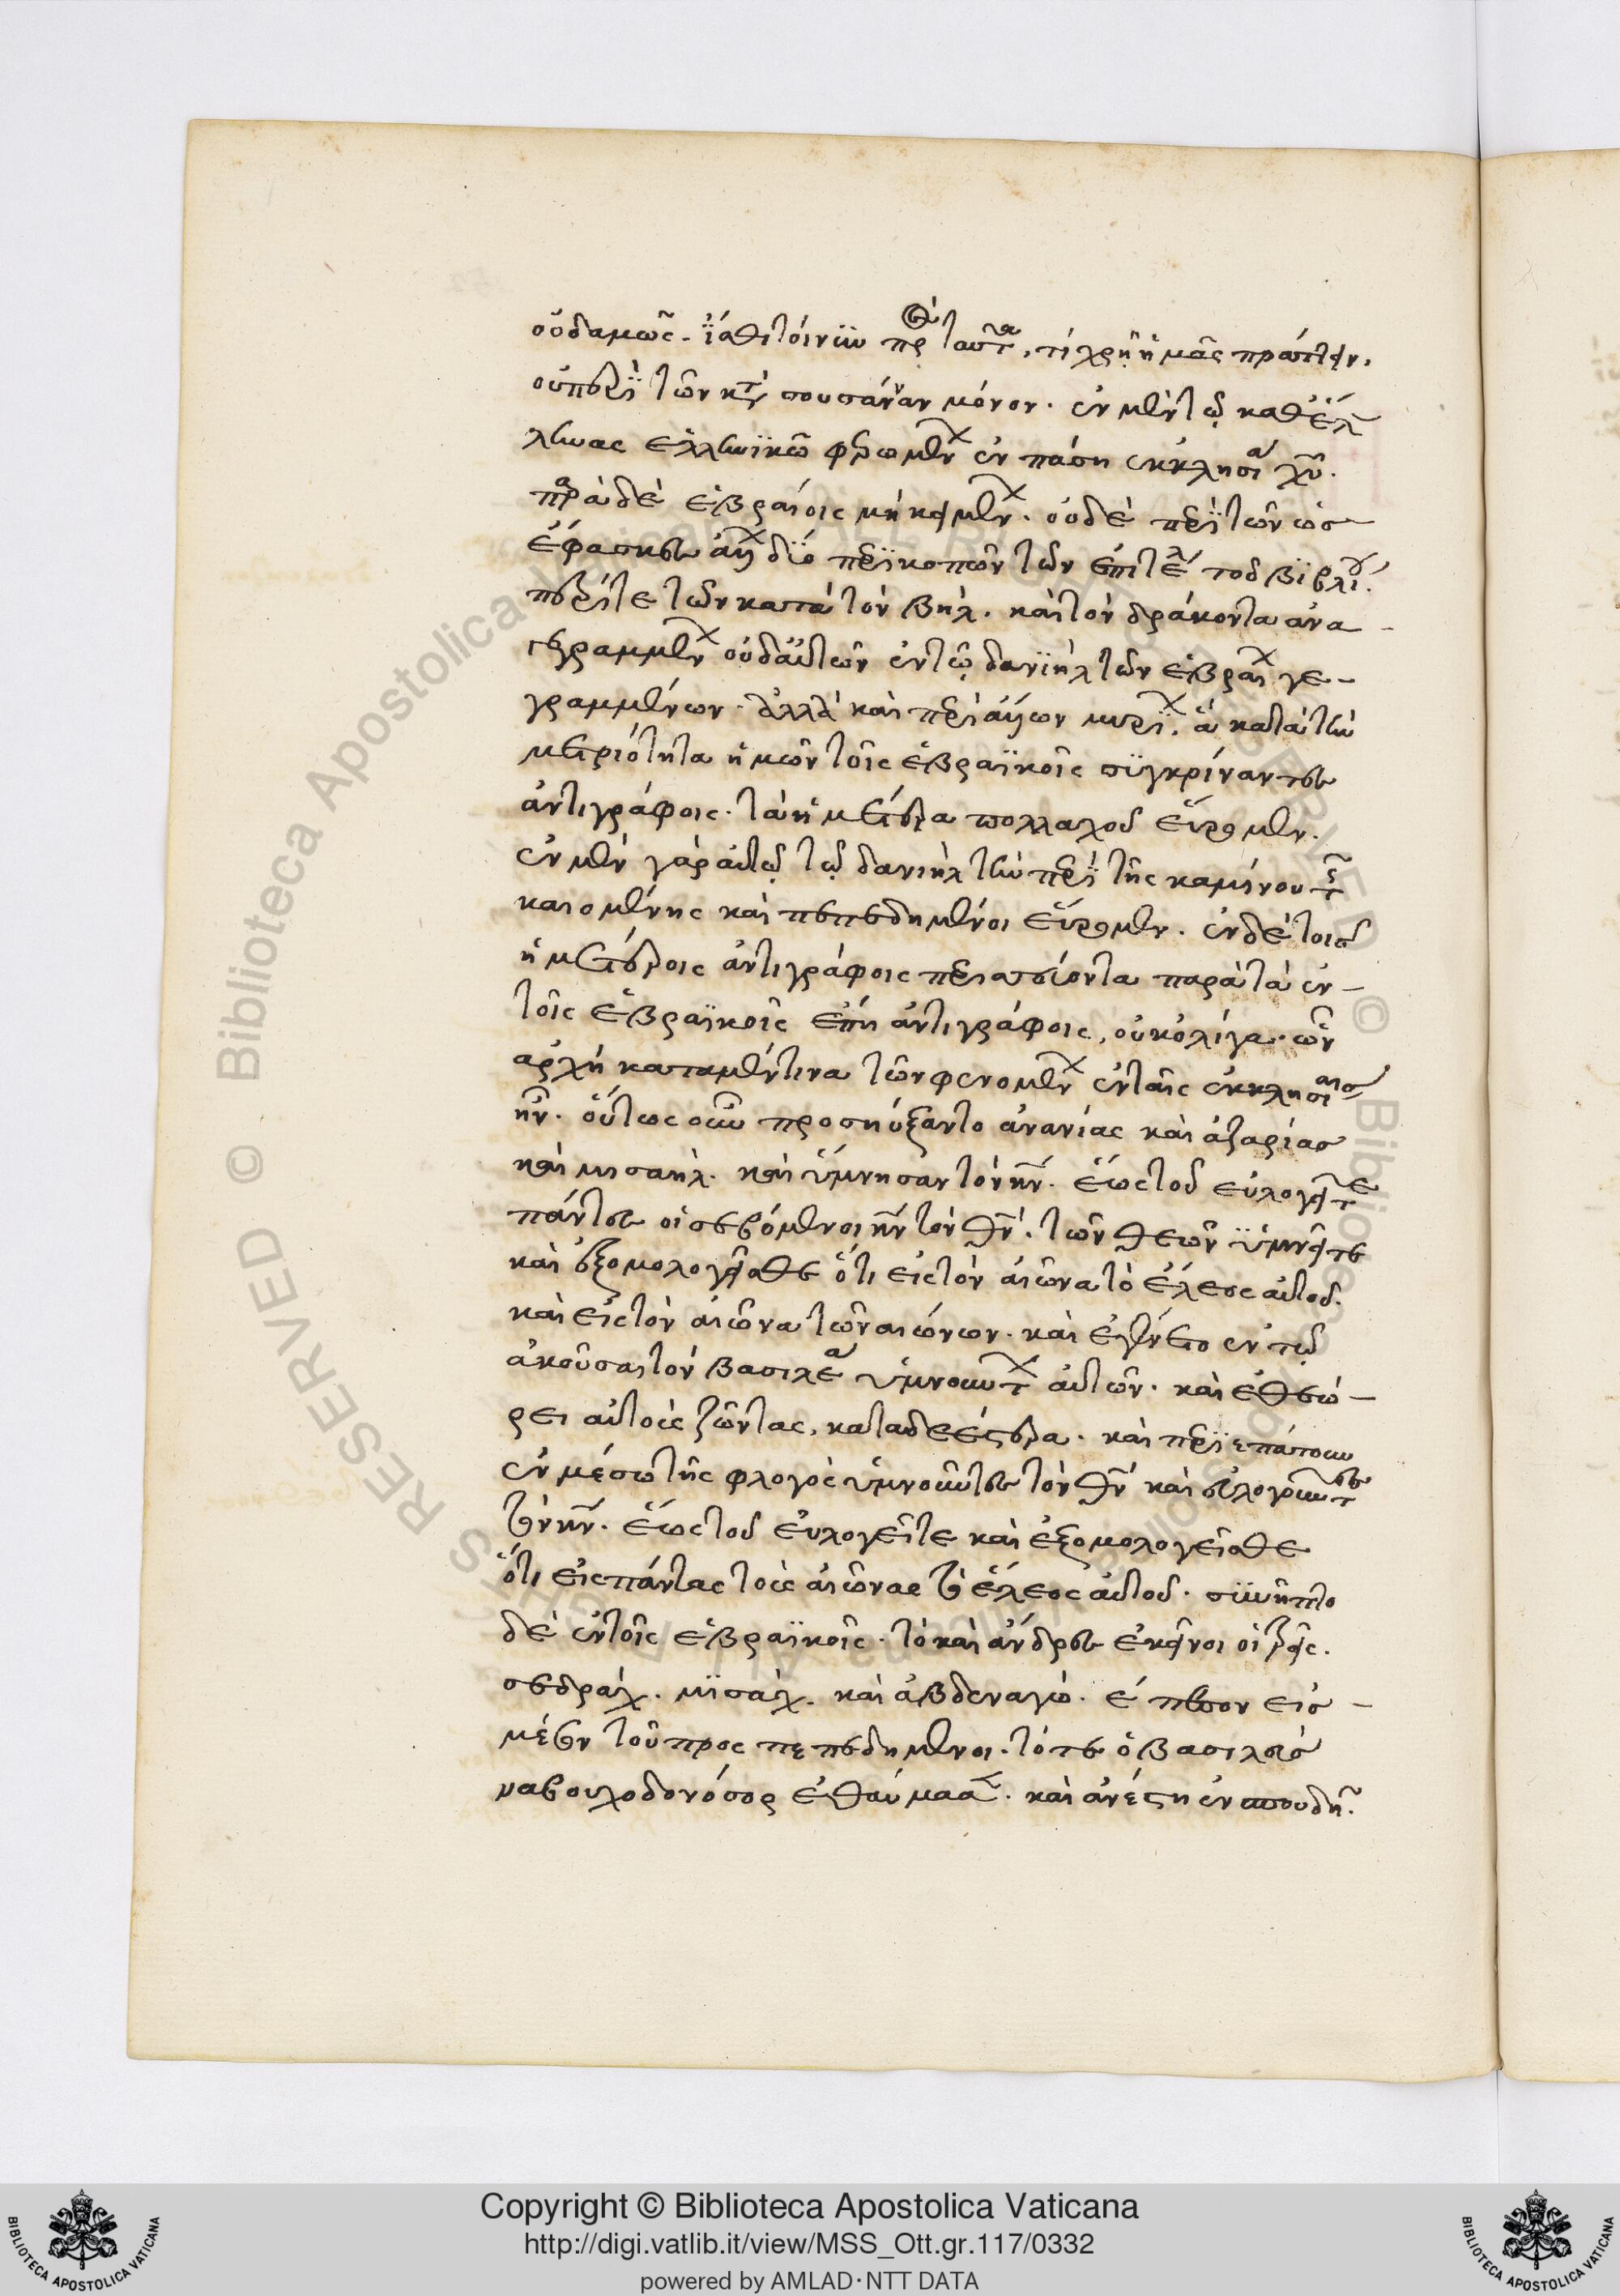 οὐδαμῶς. ἴσθι τοίνϋν πρ ταῦτα, τί χρὴ ἡμᾶς πράττειν,
οὐ περὶ τῶν κτ σουσάνναν μόνον. ἐν μὲν τῶ καθ ἕλ
ληνας ἑλληνϊκῶ φερομεν ἐν πάση ἐκκλησία χυ.
παρὰ δὲ ἑβραίοις μὴ κειμεν. οὐδὲ περὶ τῶν ὡσ
ἔφασκες ἀλλ δύο περϊκοπῶν τῶν ἐπὶ τέλ τοῦ βϊβλίου.
περί τε τῶν κατὰ τὸν βὴλ. καὶ τὸν δράκοντα ἀνα
γεγραμμεν οὐδ αὐτῶν ἐν τῶ δανϊὴλ τῶν ἑβραί γε
γραμμένων. ἀλλὰ καὶ περὶ ἄλλων μυρί. ἃ κατὰ τὴν
μετριότητα ἡμῶν τοῖς ἑβραϊκοῖς συγκρίναντες
ἀντιγράφοις. τὰ ἡμέτερα πολλαχοῦ εὕρομεν.
ἐν μὲν γὰρ αὐτῶ τῶ δανιὴλ τὴν περὶ τῆς καμίνου τῆς
καιομένης καὶ πεπεδημένοι εὕρομεν. ἐν δὲ τοῖσ
ἡμετέροις ἀντιγράφοις παρὰ τὰ ἐν
τοῖς ἑβραϊκοῖς ἔπη ἀντιγράφοις, οὐκ ὀλίγα. ὧν
ἀρχὴ κατὰ μέν τινα τῶν φενομεν ἐν ταῖς ἐκκλησίαισ
ἦν. οὕτως οὖν προσηύξαντο ἀνανίας καὶ ἀζαρίασ
καὶ μισαήλ. καὶ ὕμνησαν τὸν κν. ἕως τοῦ εὐλογεῖτε
πάντες οἱ σεβόμενοι κν τὸν θν. τῶν θεῶν ὑμνεῖτε
καὶ ἐξομολογεῖσθε ὅτι εἰς τὸν αἰῶνα τὸ ἔλεος αὐτοῦ.
καὶ εἰς τὸν αἰῶνα τῶν αἰώνων. καὶ ἐγένετο ἐν τῶ
ἀκοῦσαι τὸν βασιλέα ὑμνουντ αὐτῶν. καὶ ἐθεώ
ρει αὐτοὺς ζῶντας, κατὰ δὲ ἕτερα. καὶ περϊεπάτουν
ἐν μέσω τῆς φλογὸς ὑμνοῦντες τὸν θν καὶ εὐλογοῦντες
τὸν κν. ἕως τοῦ εὐλογεῖτε καὶ ἐξομολογεῖσθε
ὅτι εἰς πάντας τοὺς αἰῶνας τὸ ἔλεος αὐτοῦ. συνῆπτο
δὲ ἐν τοῖς ἑβραϊκοῖς. τὸ καὶ ἄνδρες ἐκεῖνοι οἱ τρεῖς.
σεδράχ. μϊσάχ. καὶ ἀβδεναγώ. ἔπεσον εἰσ
μέσον τοῦ πρὸς πεπεδημένοι. τότε ὁ βασιλεὺσ
ναβουχοδονόσορ ἐθαύμασ. καὶ ἀνέστη ἐν σπουδῆ.
Copyright © Biblioteca Apostolica Vaticana
http://digi.vatlib.it/view/MSS_Ott.gr.117/0332
powered by AMLAD·NTT DATA